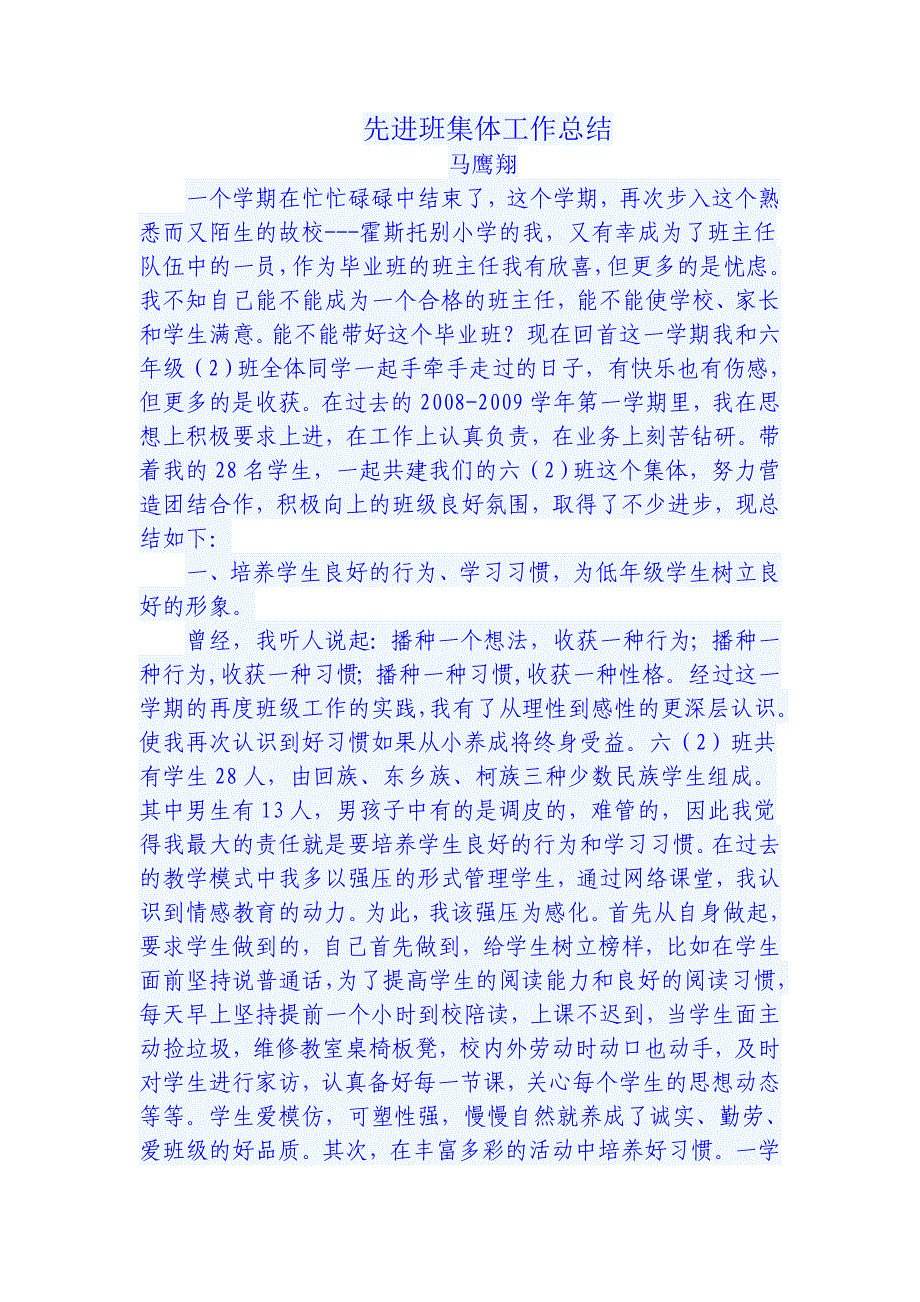 先进班集体工作总结
马鹰翔
一个学期在忙忙碌碌中结束了，这个学期，再次步入这个熟
悉而又陌生的故校---霍斯托别小学的我，又有幸成为了班主任
队伍中的一员，作为毕业班的班主任我有欣喜，但更多的是忧虑。
我不知自己能不能成为一个合格的班主任，能不能使学校、家长
和学生满意。能不能带好这个毕业班？现在回首这一学期我和六
年级（2）班全体同学一起手牵手走过的日子，有快乐也有伤感，
但更多的是收获。在过去的 2008-2009 学年第一学期里，我在思
想上积极要求上进，在工作上认真负责，在业务上刻苦钻研。带
着我的 28 名学生，一起共建我们的六（2）班这个集体，努力营
造团结合作，积极向上的班级良好氛围，取得了不少进步，现总
结如下：
一、培养学生良好的行为、学习习惯，为低年级学生树立良
好的形象。
曾经，我听人说起：播种一个想法，收获一种行为；播种一
种行为，收获一种习惯；播种一种习惯，收获一种性格。经过这一
学期的再度班级工作的实践，我有了从理性到感性的更深层认识。
使我再次认识到好习惯如果从小养成将终身受益。六（2）班共
有学生 28 人，由回族、东乡族、柯族三种少数民族学生组成。
其中男生有 13 人，男孩子中有的是调皮的，难管的，因此我觉
得我最大的责任就是要培养学生良好的行为和学习习惯。在过去
的教学模式中我多以强压的形式管理学生，通过网络课堂，我认
识到情感教育的动力。为此，我该强压为感化。首先从自身做起，
要求学生做到的，自己首先做到，给学生树立榜样，比如在学生
面前坚持说普通话，为了提高学生的阅读能力和良好的阅读习惯，
每天早上坚持提前一个小时到校陪读，上课不迟到，当学生面主
动捡垃圾，维修教室桌椅板凳，校内外劳动时动口也动手，及时
对学生进行家访，认真备好每一节课，关心每个学生的思想动态
等等。学生爱模仿，可塑性强，慢慢自然就养成了诚实、勤劳、
爱班级的好品质。其次，在丰富多彩的活动中培养好习惯。一学